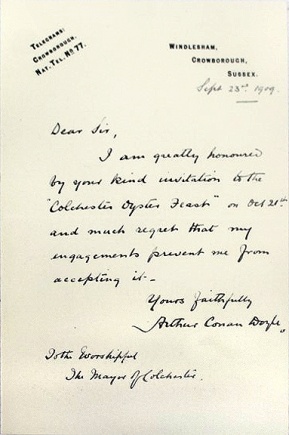 Telegrams:
Crowborough.
Nat. Tel. No 77.
Windlesham,
Crowborough,
Sussex.
Sept 23rd 1909.
Dear Sir,
I am greatly honoured
by your kind invitation to the
"Colchester Oyster Feast" on Oct 21st
and much regret that my
engagements prevent me from
accepting it.-
Yours faithfully
Arthur Conan Doyle
To the Worshipful
The Mayor of Colchester.